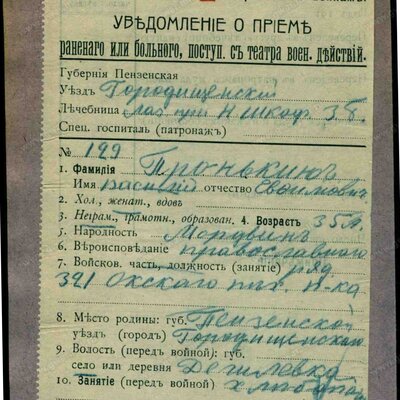 УВѢДОМЛЕНІЕ О ПРІЕМѢ
раненаго или больного, поступ. съ театра воен. дѣйствій.
Губернія Пензенская
Уѣздъ Городищенскій
Лѣчебница при
Спец. госпиталь (патронажъ)
№ 129
1. Фамилія Пронькинъ
Имя Василій отчество
2. Хол., женат., вдовъ
3. Неграм., грамотн., образован. 4. Возрастъ 35 л.
5. Народность Мордвинъ
6. Вѣроисповѣданіе православнаго
7. Войсков. часть, должность (занятіе) ряд
321 Окскаго пѣх. п-ка
8. Мѣсто родины: губ. Пензенской
уѣздъ (городъ) Городищенскаго
9. Волость (передъ войной): губ.
село или деревня
10. Занятіе (передъ войной)